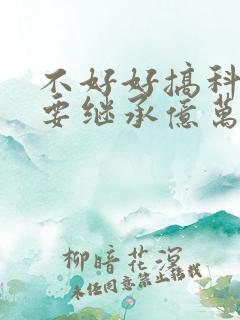 不好好搞科
要继承億萬
柳暗花溟
未经同意禁止转载